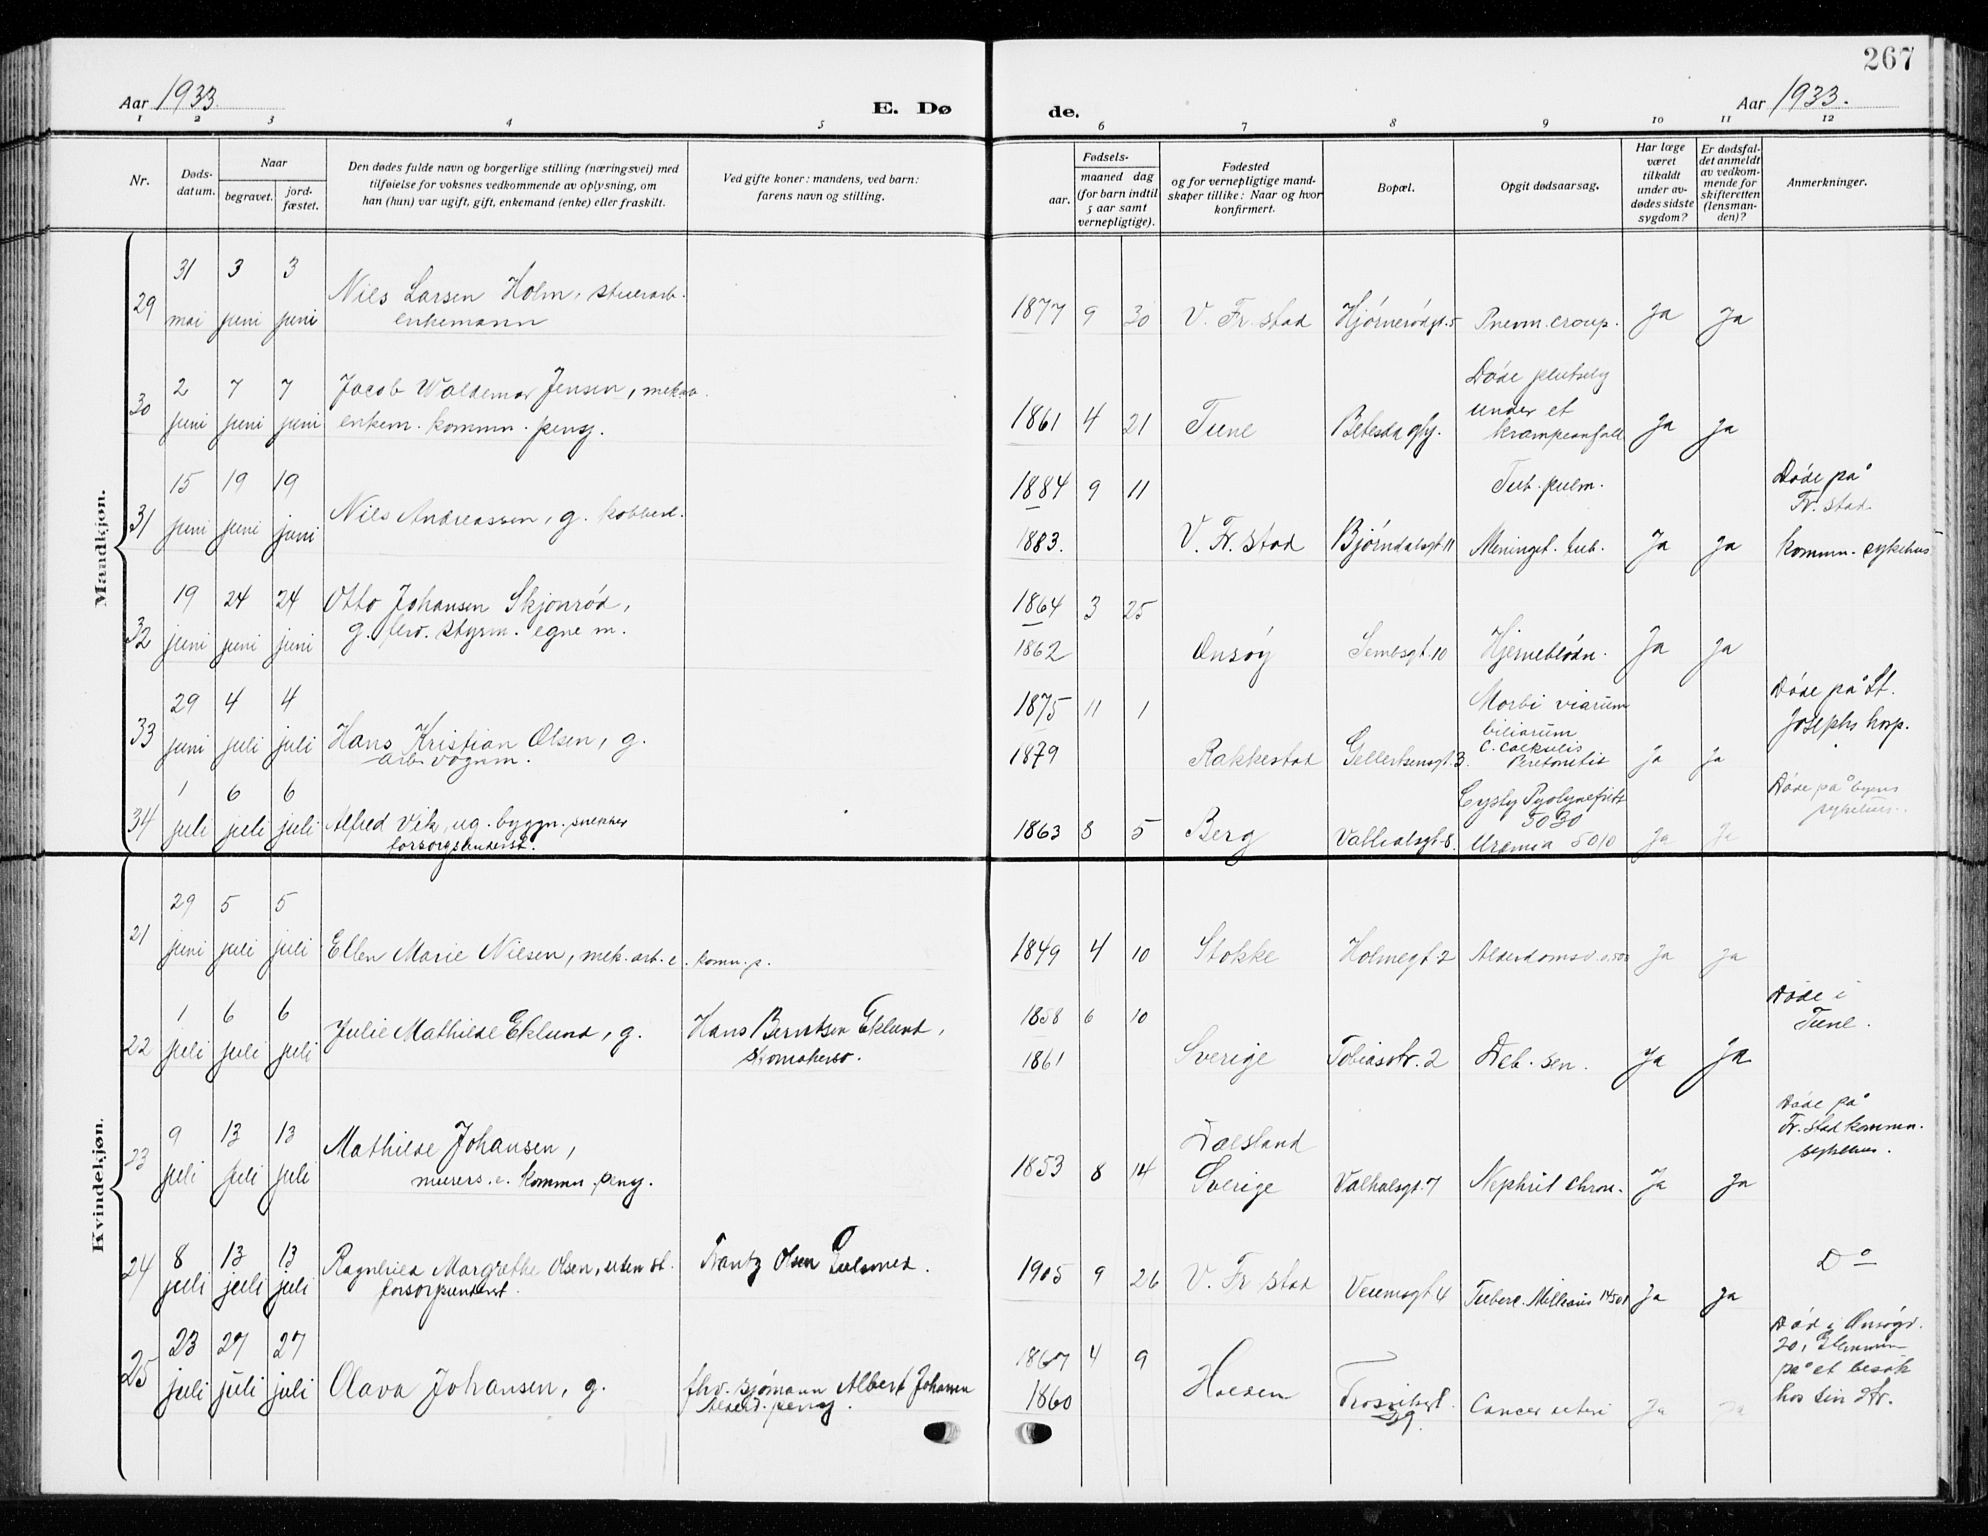 267
Aar 1933.
E. Dø
de.
Aar 1933.
1 2 3 4 5 6 7 8 9 10 11 12
Nr.
Døds-
datum.
Naar
begravet.
jord-
fæstet.
Den dødes fulde navn og borgerlige stilling (næringsvei) med
tilføielse for voksnes vedkommende av oplysning, om
han (hun) var ugift, gift, enkemand (enke) eller fraskilt.
Ved gifte koner: mandens, ved barn:
farens navn og stilling.
aar.
Fødsels-
maaned dag
(for barn indtil
5 aar samt
vernepligtige).
Fødested
og for vernepligtige mand-
skaper tillike: Naar og hvor
konfirmert.
Bopæl.
Opgit dødsaarsag.
Har læge
været
tilkaldt
under av-
dødes sidste
sygdom?
Er dødsfal-
det anmeldt
av vedkom-
mende for
skifteretten
(lensman-
den)?
Anmerkninger.
Mandkjøn.
29 31 mai 3 juni 3 juni Nils Larsen Holm, stuerarb.
enkemann
1877 9 30 V. Fr.stad Hjørnerødgt. 5 Pneum. croup. Ja Ja
30 2 juni 7 juni 7 juni Jacob Waldemar Jensen, mek.arb.
enkem. kommn. pensj.
1861 4 21 Tune Betesda gly. Døde plutselig
under et
krampeanfall Ja Ja
31 15 juni 19 juni 19 juni Nils Andreassen, g. kobbersl.
1884 9 11 Tub. pulm. Døde på
Fr.stad
1883. V. Fr.stad Bjørndalsgt 11 Meningit. tub. Ja Ja kommn. sykehus
32 19 juni 24 juni 24 juni Otto Johansen Skjønrød,
g. frv. styrm. egne m.
1864 3 25
1862 Onsøy Sembsgt. 10 Hjerneblødn. Ja Ja
33 29 juni 4 juli 4 juli Hans Kristian Olsen, g.
arb. vognm.
1875 11 1 Morbi viarum
biliarum
c. calculis
Peretonitis
Døde på St.
Josephs hosp.
1879 Rakkestad Gellertsensgt. 3. Ja Ja
34 1 juli 6 juli 6 juli Alfred Vik, ug. byggn. snekker
forsorgsunderst.
1863 8 5 Berg Valhalsgt. 8.
5030
Uræmia 5010 Ja Ja Døde på byens
sykehus.
Kvindekjøn.
21 29 juni 5 juli 5 juli Ellen Marie Nilsen, mek. arb. e. komn. p.
1849 4 10 Stokke Holmegt. 2 Alderdomsv. Ja Ja
22 1 juli 6 juli 6 juli Julie Mathilde Eklund, g. Hans Berntsen Eklund,
skomakersv.
1858 6 10 Døde i
Tune.
1861 Sverige Tobiasstr. 2 Deb. sen. Ja Ja
23 9 juli 13 juli 13 juli Mathilde Johansen,
murers. e. kommn. pensj.
1853 8 14 Dalsland
Sverige Valhalsgt. 7 Nephrit chron. Ja Ja
Døde på
Fr.stad kommn.
sykehus.
24 8 juli 13 juli 13 juli Ragnhild Margrethe Olsen, uten st.
forsorgsunderst.
Frantz Olsen Gulsmed.
1905 9 26 V. Fr.stad Veumsgt 4 Tuberc. Milliaris Ja Ja Do
25 23 juli 27 juli 27 juli Olava Johansen, g. fhv. sjømann Albert Johansen
alderd. pensj.
1867 4 9
1860 Halden Trosvikgt.
29. Cancer uteri Ja Ja
Død i Onsøygt.
20, Glemmen
på et besøk
hos sin dtr.